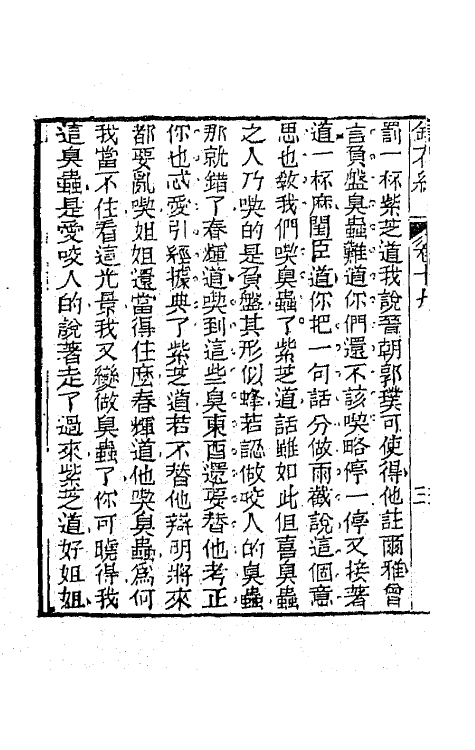 罰一杯紫芝道我說晉朝郭璞可使得他註爾雅曾
言負盤臭蟲難道你們還不該喫略停一停又接著
道一杯麻閨臣道你把一句話分做兩截說這個意
思也敎我們喫臭蟲了紫芝道話雖如此但喜臭蟲
之人乃喫的是負盤其形似蜂若認做咬人的臭蟲
那就錯了春輝道喫到這些臭東西還要替他考正
你也忒愛引經據典了紫芝道若不替他辯明將來
都要亂喫姐姐還當得住麼春輝道他喫臭蟲爲何
我當不住看這光景我又變做臭蟲了你可曉得我
這臭蟲是愛咬人的說著走了過來紫芝道好姐姐